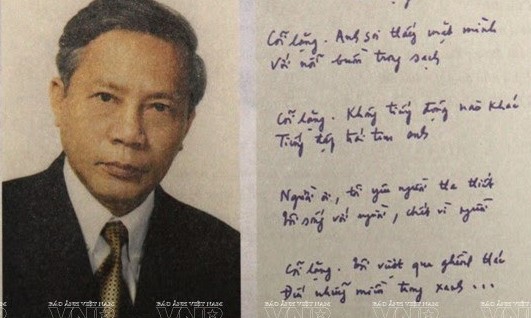 Cõi lặng. Anh soi thấy mặt mình
Với nỗi buồn trong sạch
Cõi lặng. Không tiếng động nào khác
Tiếng đập trái tim anh
Người ơi, tôi yêu người tha thiết
Tôi sống với người, chết vì người
Cõi lặng. Tôi vượt qua ghềnh thác
Đến những miền trong xanh ...
BÁO ẢNH VIỆT NAM
BÁO ẢNH VIỆT NAM
BÁO ẢNH VIỆT NAM
VNP
VNP